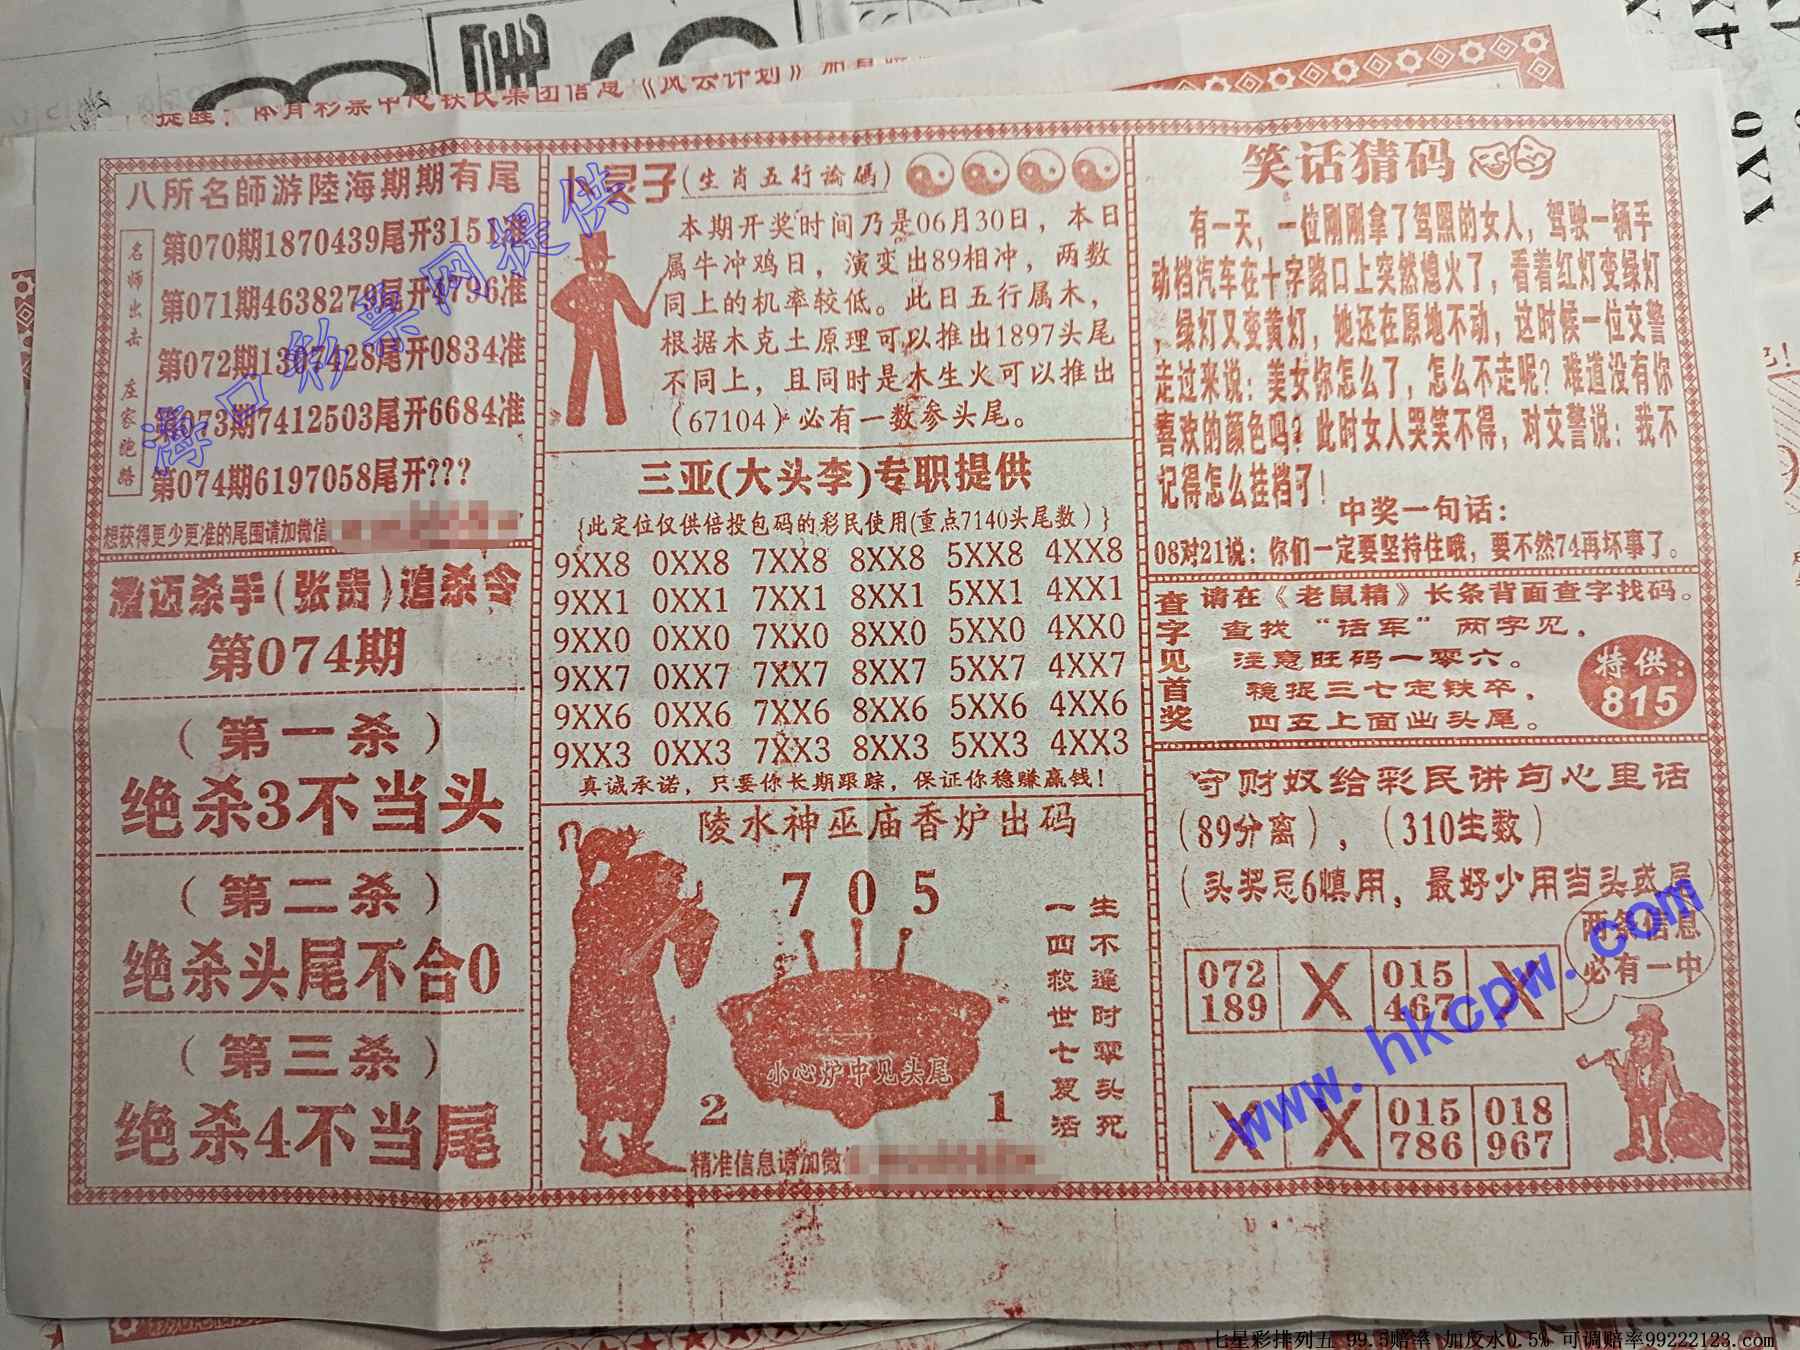 八所名師游陸海期期有尾
名师出击 庄家跑路
第070期1870439尾开3151准
第071期4638279尾开
第072期1307428尾开0834准
第073期7412503尾开6684准
第074期6197058尾开???
想获得更少更准的尾围请加微信
澄迈杀手(张贵)追杀令
第074期
(第一杀)
绝杀3不当头
(第二杀)
绝杀头尾不合0
(第三杀)
绝杀4不当尾
小灵子(生肖五行論碼)
本期开奖时间乃是06月30日，本日
属牛冲鸡日，演变出89相冲，两数
同上的机率较低。此日五行属木，
根据木克土原理可以推出1897头尾
不同上，且同时是木生火可以推出
(67104)必有一数参头尾。
三亚(大头李)专职提供
{此定位仅供倍投包码的彩民使用(重点7140头尾数)}
9XX8 0XX8 7XX8 8XX8 5XX8 4XX8
9XX1 0XX1 7XX1 8XX1 5XX1 4XX1
9XX0 0XX0 7XX0 8XX0 5XX0 4XX0
9XX7 0XX7 7XX7 8XX7 5XX7 4XX7
9XX6 0XX6 7XX6 8XX6 5XX6 4XX6
9XX3 0XX3 7XX3 8XX3 5XX3 4XX3
真诚承诺，只要你长期跟踪，保证你稳赚赢钱！
陵水神巫庙香炉出码
7 0 5
小心炉中见头尾
2 1
生不逢时零头死
一四救世七复活
精准信息请加微
笑话猜码
有一天，一位刚刚拿了驾照的女人，驾驶一辆手
动档汽车在十字路口上突然熄火了，看着红灯变绿灯
，绿灯又变黄灯，她还在原地不动，这时候一位交警
走过来说：美女你怎么了，怎么不走呢？难道没有你
喜欢的颜色吗？此时女人哭笑不得，对交警说：我不
记得怎么挂档了！
中奖一句话：
08对21说：你们一定要坚持住哦，要不然74再坏事了。
查字见首奖
请在《老鼠精》长条背面查字找码。
查找“话军”两字见，
注意旺码一零六。
稳捉三七定铁卒，
四五上面出头尾。
特供：
815
守财奴给彩民讲句心里话
(89分离)，(310生数)
(头奖忌6慎用，最好少用当头或尾)
两条信息
必有一中
072 X 015 X
189 467
X X 015 018
786 967
海口彩票网提供
www.hkcpw.com
七星彩排列五 99.5赔率 加反水0.5% 可调赔率99222123.com